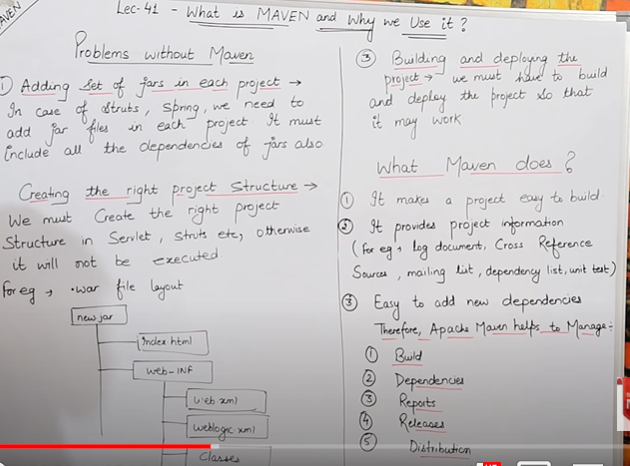 AVEN
Lec-41 - What is MAVEN and Why we Use it ?
Problems without Maven
① Adding Set of Jars in each project →
In case of struts, spring, we need to
add jar files in each project. It must
include all the dependencies of jars also
Creating the right project Structure →
We must Create the right project
Structure in Servlet, struts etc, otherwise
it will not be executed
For eg → .war file layout
new jar
index html
web-INF
web xml
weblogic xml
Classes
③ Building and deploying the
project → we must have to build
and deploy the project so that
it may work
What Maven does ?
① It makes a project easy to build
② It provides project information
(for eg → log document, Cross Reference
Sources, mailing list, dependency list, unit test)
③ Easy to add new dependencies
Therefore, Apache Maven helps to Manage :-
① Build
② Dependencies
③ Reports
④ Releases
⑤ Distribution